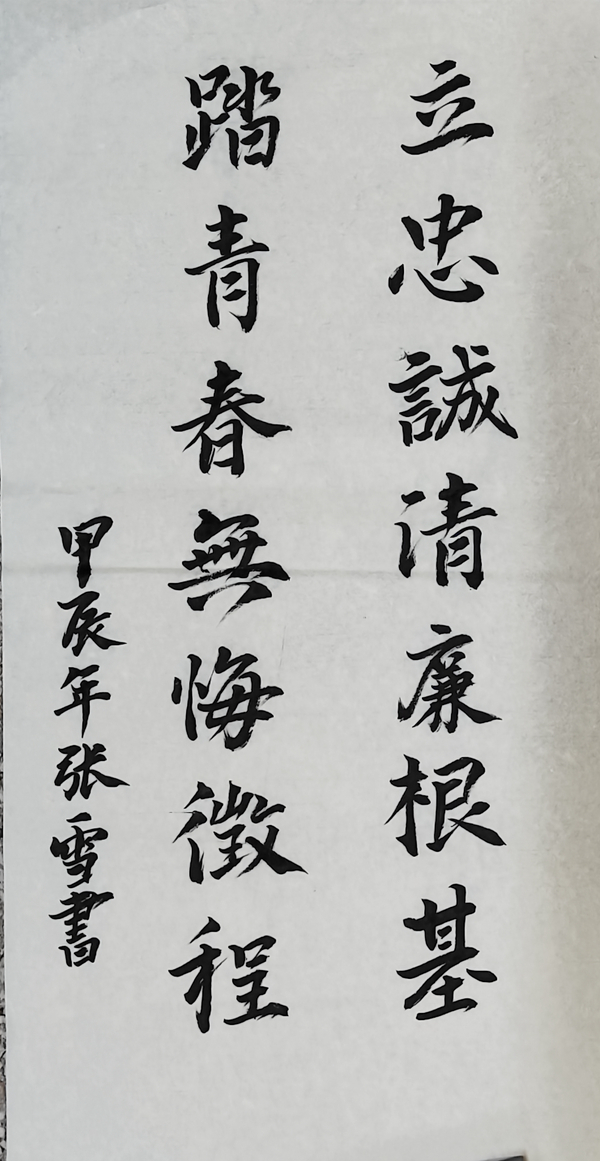 立忠誠清廉根基
踏青春無悔徵程
甲辰年张雪書